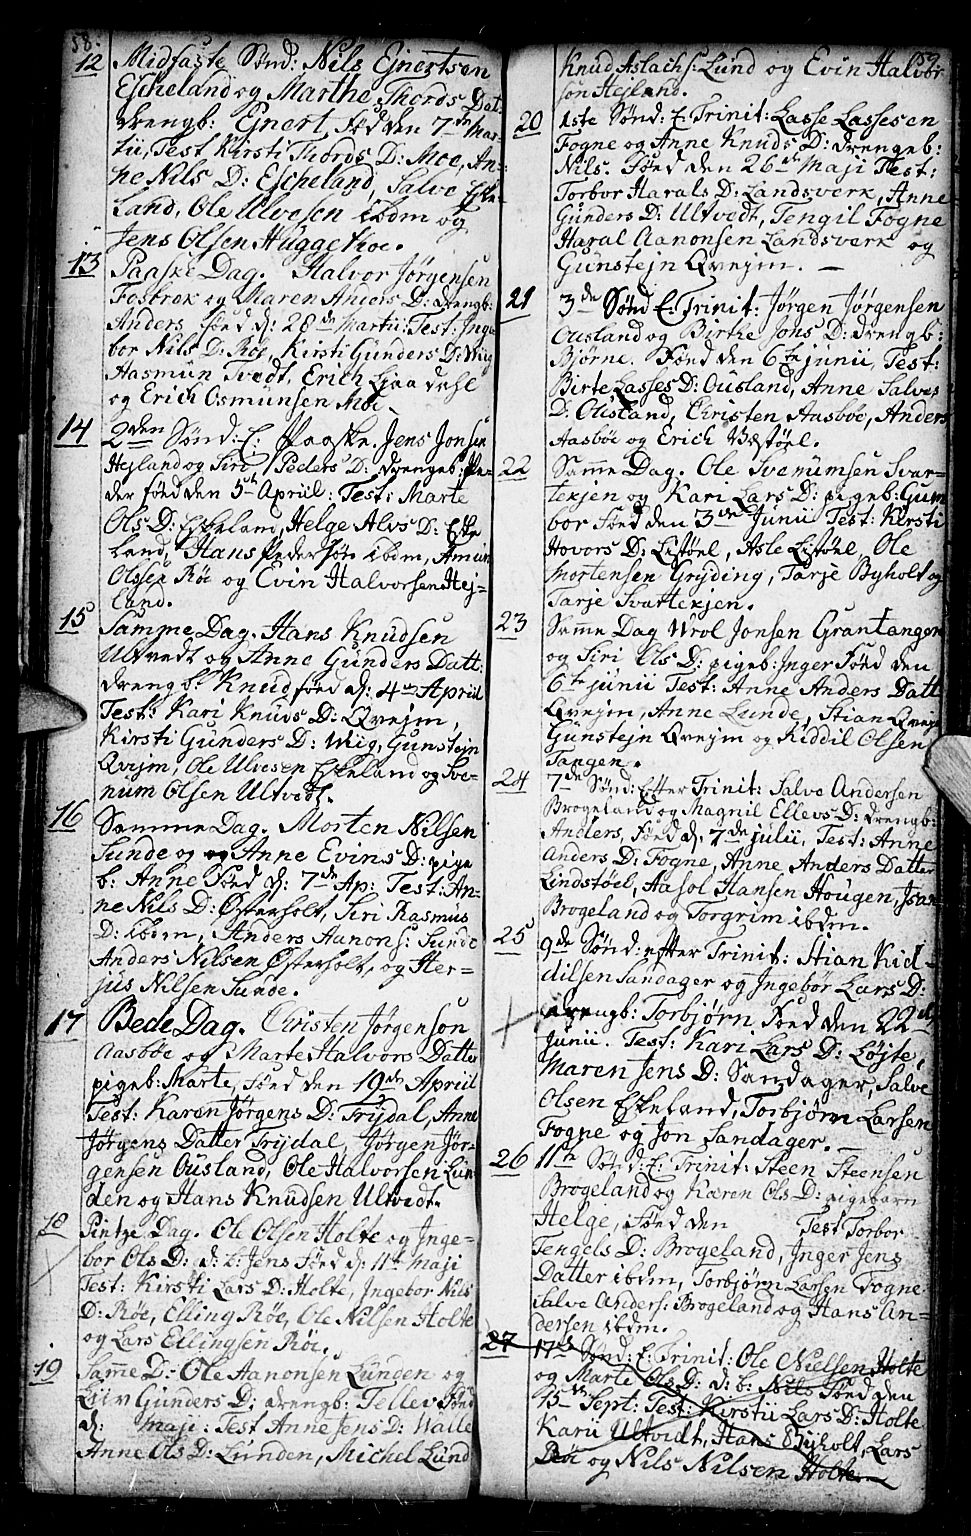 58.
12 Midfaste Sønd: Nils Ejnertsen
Escheland og Marthe Thords Dat
drengb: Ejnert, Fød den 7de Mar-
tii, Test Kirsti Thords D: Moe, An-
ne Nils D: Escheland, Salve Eske-
land, Ole Ulvesen ibdm og
Jens Olsen Huggekoe.
13 Paaske Dag. Halvor Jørgensen
Fosbrok og Maren Anders D: drengb:
Anders Fød d: 28de Martii: Test: Inge
bor Nils D: Røe Kirsti Gunders D: Wiig
Hasmun Tvedt, Erich Ljaadahl
og Erich Osmunsen Moe.
14 2den Sønd: E: Paaske. Jens Jonsen
Hejland og Siri Peders D: drengeb: Pe-
der Føed den 5th Apriil: Test: Marte
Ols D: Eskeland, Helge Alvs D: Eske
land, Hans Pedersøn ibdm, Amun
Olssen Røe og Evin Halvorsen Hej-
land.
15 Samme Dag. Hans Knudsen
Ultvedt og Anne Gunders Datt:
drengb: Knud føed d: 4de Apriil
Test: Kari Knuds D: Qvejm,
Kirsti Gunders D: Wiig, Gunstejn
Qvejm, Ole Ulvesen Eskeland og Sve-
num Olsen Ultvedt.
16 Samme Dag. Morten Nilsen
Sunde og og Anne Evins D: pige
b: Anne Fød d: 7de Ap: Test: An-
ne Nils D: Østerholt, Siri Rasmus
D: ibdm, Anders Aanons: Sunde
Anders Nilsen Østerholt, og Her-
jus Nilsen Sunde.
17 Bede Dag. Christen Jørgensøn
Aasbøe og Marte Halvors Datter
pigeb: Marte, Fød den 19de Apriil
Test: Karen Jørgens D: Trydal, Anne
Jørgens Datter Trydal, Jørgen Jør-
gensen Ousland, Ole Halvorsen Lun-
den og Hans Knudsen Ultvidt.
18 Pintze Dag. Ole Olsen Holte og Inge-
bor Ols D: d: b: Jens Fød d: 11te Maji
Test: Kirsti Lars D: Holte, Ingebor Nils
D: Røe, Elling Røe, Ole Nilsen Holte
og Lars Ellingsen Røe.
19 Samme D: Ole Aanonsen Lunden og
Liiv Gunders D: drengb: Tellev Fød
d: Maji: Test Anne Jens D: Walle
Anne Ols D: Lunden, Michel Lund
59
Knud Aslachs: Lund og Evin Halvor
son Hejland.
20 1ste Sønd: E: Trinit: Lasse Lassesen
Fogne og Anne Knuds D: drengeb:
Nils. Fød den 26de Maji Test:
Torbor Harals D: Landsverk, Anne
Gunders D: Ultvedt, Tengil Fogne
Haral Aanonsen Landsverk og
Gunstejn Qvejm. —
21 3de Sønd E: Trinit: Jørgen Jørgensen
Ousland og Birthe Jons D: drengb:
Bjørne. Fød den 6te junii, Test:
Birte Lasses D: Ousland, Anne Salves
D: Ousland, Christen Aasbøe, Anders
Aasbøe og Erich Bestøel.
22 Samme Dag. Ole Svenumsen Svar-
tekjen og Kari Lars D: pigeb: Gum
bor Fød den 3de Junii Test: Kirsti
Hovors D: Listøel, Asle Listøel, Ole
Mortensen Gryding, Tarje Byholt og
Tarje Svartekjen.
23 Samme Dag Wrol Jonsen Grantangen
og Siri Ols D: pigeb: Inger Fød den
6te junii Test: Anne Anders Datt
Qvejm, Anne Lunde, Stian Qvejm
Gunstejn Qvejm og Kiddil Olsen
Tangen.
24 7de Sønd: Efter Trinit: Salve Andersen
Brogeland og Magnil Ellevs D: drengb:
Anders, Fød d: 7de julii, Test: Anne
Anders D: Fogne, Anne Anders Datter
Lindstøel, Aasol Hansen Hougen, Ivar
Brogeland og Torgrim ibdm.
25 9de Sønd: efter Trinit: Stian Kid-
dilsen Sandager og Ingebor Lars D:
drengb: Torbjørn, Fød den 22de
Junii. Test: Kari Lars D: Løjte,
Maren Jens D: Sandager, Salve
Olsen Eskeland, Torbjørn Larsen
Fogne og Jon Sandager.
26 11te Sønd: E: Trinit: Steen Steensen
Brogeland og Karen Ols D: pigebarn
Helge, Fød den Test Torbor
Tengels D: Brogeland, Inger Jens
Datter ibdm, Torbjørn Larsen Fogne
Salve Anders: Brogeland og Hans An-
dersen ibdm.
27 17de Sønd: E: Trinit: Ole Nielsen Holte
og Marte Ols D: d: b: Nils Fød den
15de Sept: Test: Kirstii Lars D: Holte
Karii Ultvidt, Hans Byholt, Lars
Røe og Nils Nilsen Holte